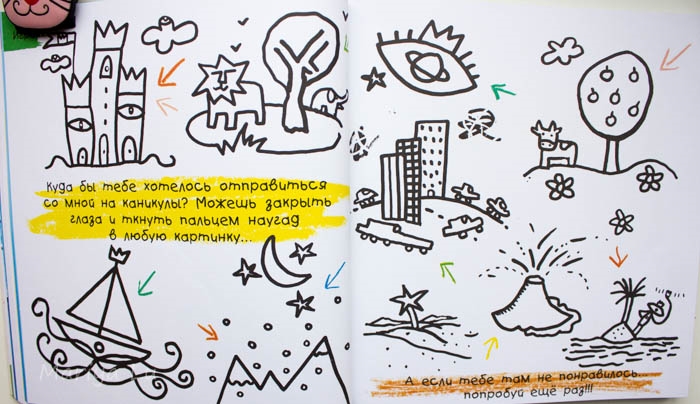 Куда бы тебе хотелось отправиться
со мной на каникулы? Можешь закрыть
глаза и ткнуть пальцем наугад
в любую картинку...
А если тебе там не понравилось...
попробуй ещё раз!!!